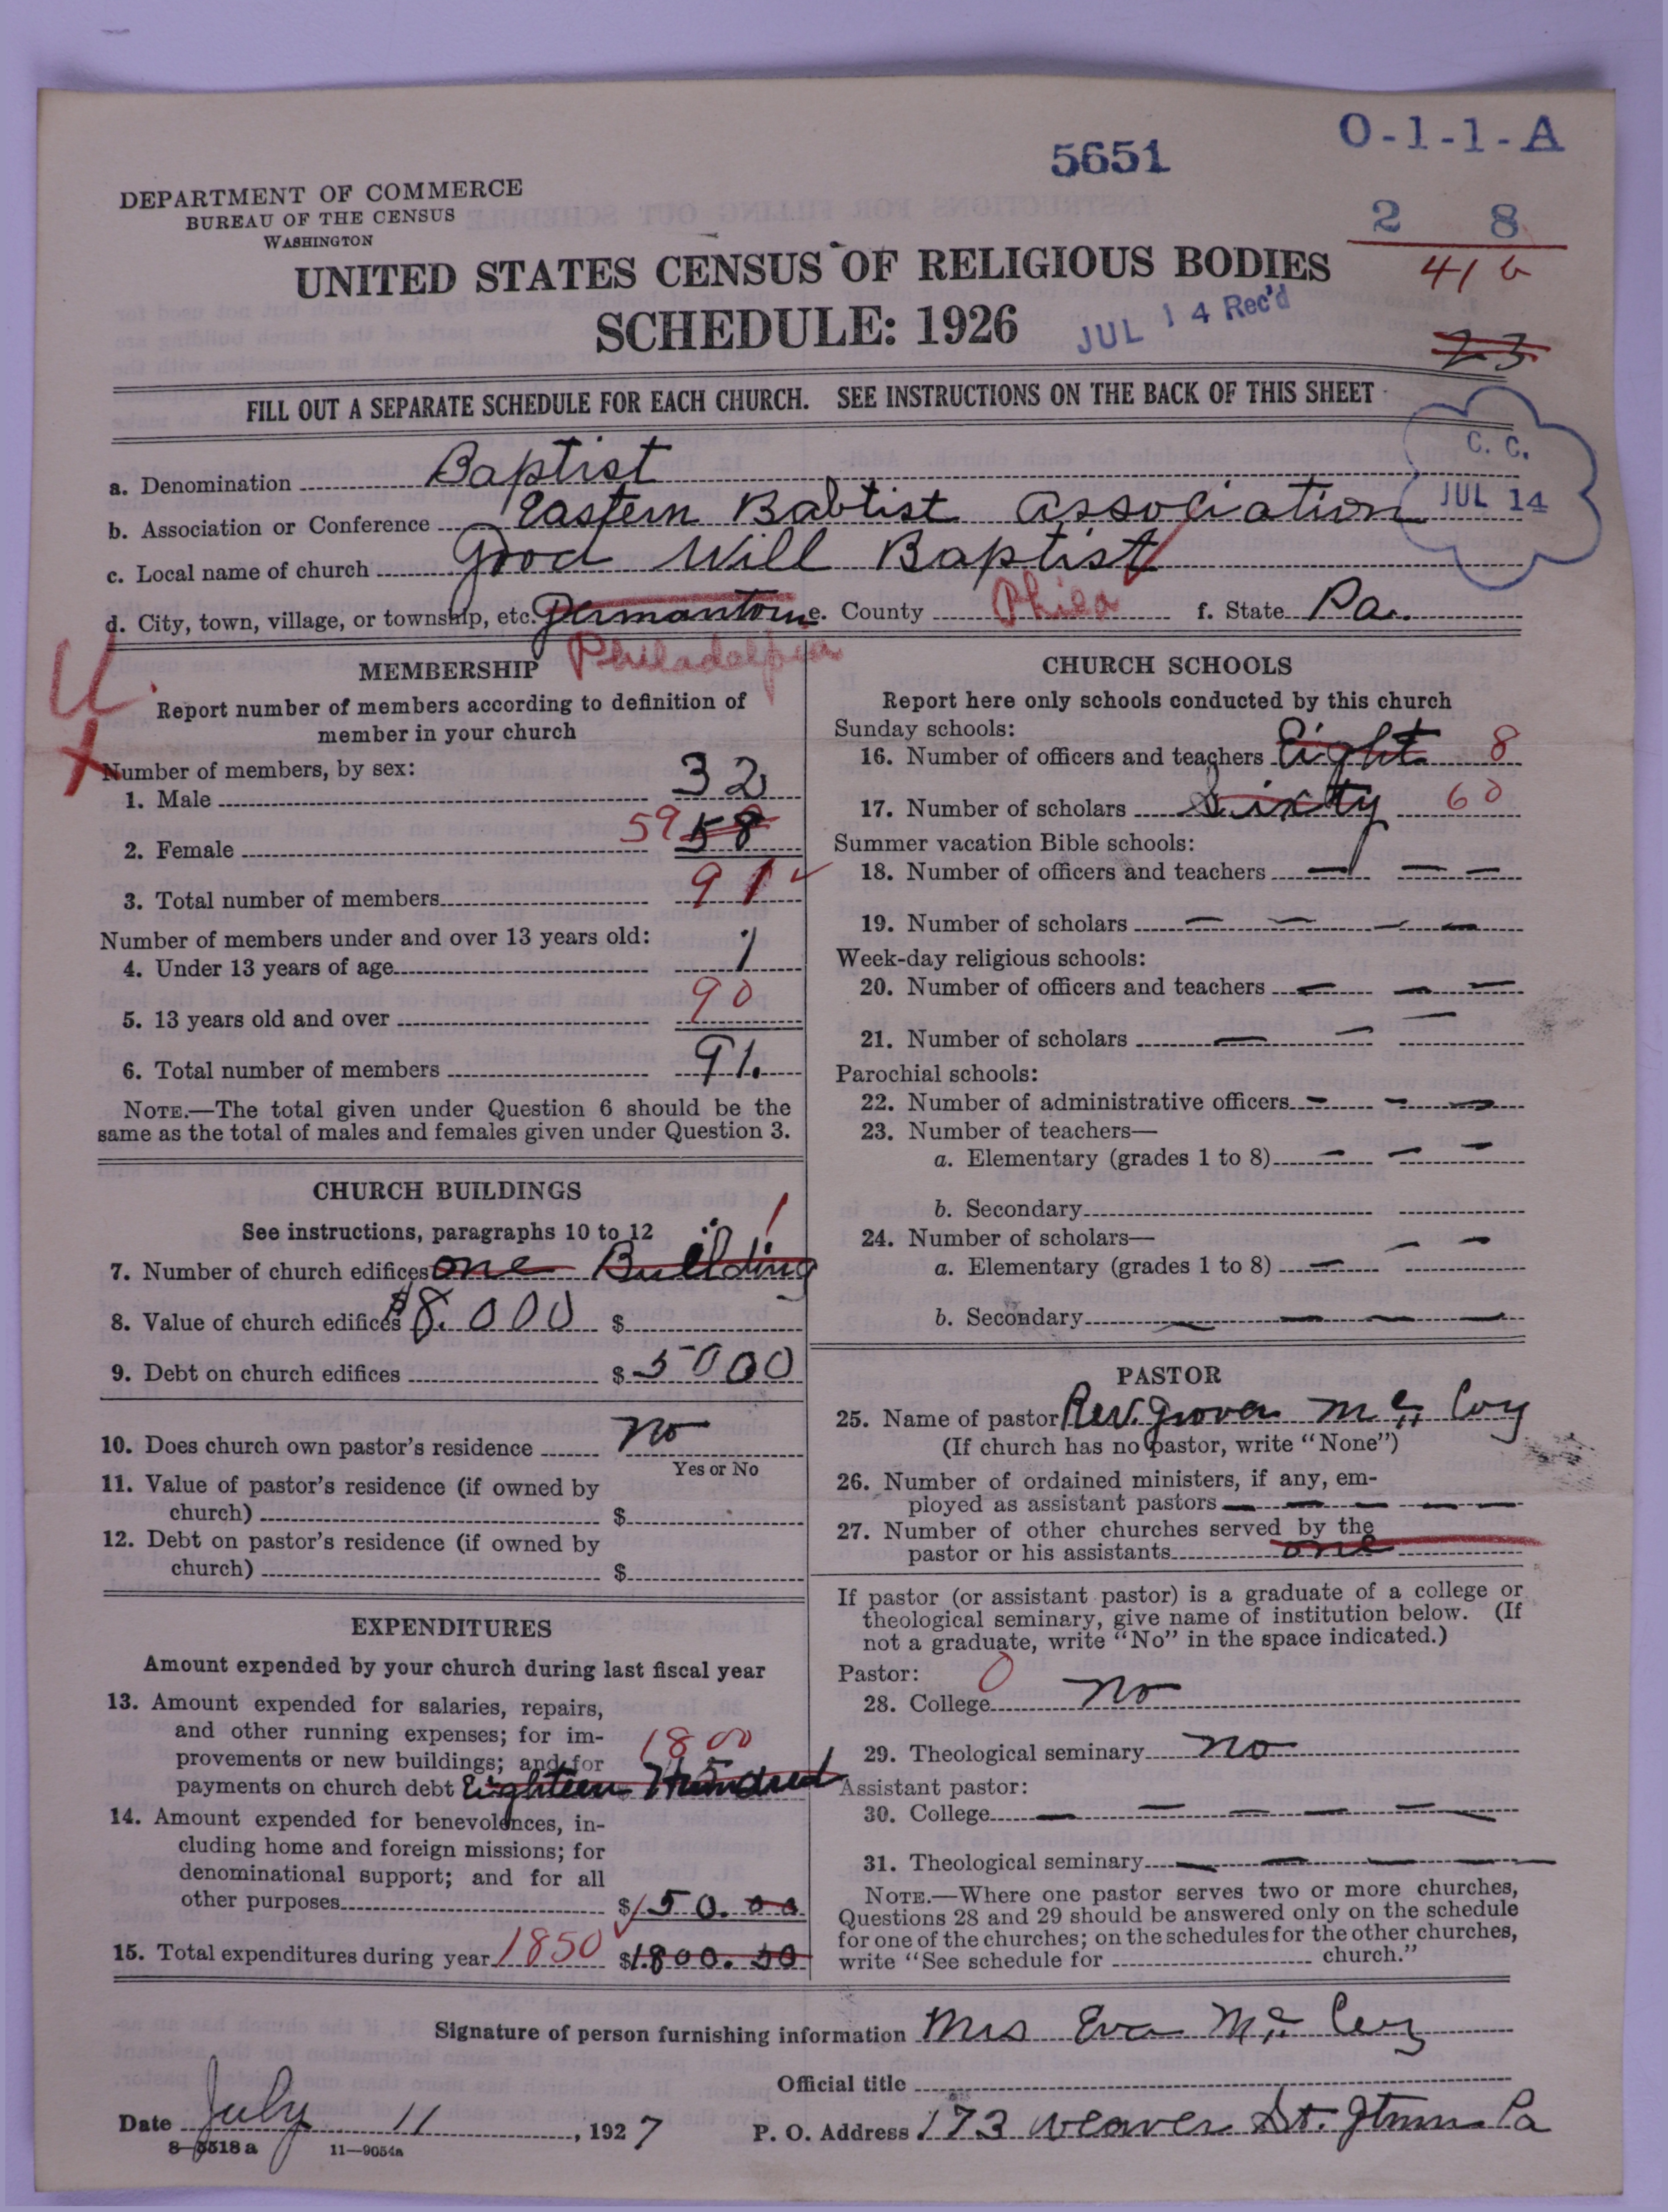 O-1-1-A
5651
DEPARTMENT OF COMMERCE
BUREAU OF THE CENSUS
WASHINGTON
2 8
41 b
UNITED STATES CENSUS OF RELIGIOUS BODIES
SCHEDULE: 1926
JUL 14 Rec'd
23
FILL OUT A SEPARATE SCHEDULE FOR EACH CHURCH. SEE INSTRUCTIONS ON THE BACK OF THIS SHEET
C. C.
JUL 14
a. Denomination Baptist
b. Association or Conference Eastern Babtist Association
c. Local name of church Good Will Baptist
d. City, town, village, or township, etc. Germantown e. County Phila f. State Pa.
Philadelphia
U.
X
MEMBERSHIP
Report number of members according to definition of
member in your church
Number of members, by sex:
1. Male 32
2. Female 59 58
3. Total number of members 91
Number of members under and over 13 years old:
4. Under 13 years of age 1
5. 13 years old and over 90
6. Total number of members 91.
NOTE.—The total given under Question 6 should be the
same as the total of males and females given under Question 3.
CHURCH BUILDINGS
See instructions, paragraphs 10 to 12
7. Number of church edifices one Building 1
8. Value of church edifices $8.000 $
9. Debt on church edifices $5000
10. Does church own pastor's residence no
Yes or No
11. Value of pastor's residence (if owned by
church) $
12. Debt on pastor's residence (if owned by
church) $
EXPENDITURES
Amount expended by your church during last fiscal year
13. Amount expended for salaries, repairs,
and other running expenses; for im-
provements or new buildings; and for 1800
payments on church debt Eighteen Hundred
14. Amount expended for benevolences, in-
cluding home and foreign missions; for
denominational support; and for all
other purposes $ 50.00
15. Total expenditures during year 1850 $1.800.50
CHURCH SCHOOLS
Report here only schools conducted by this church
Sunday schools:
16. Number of officers and teachers Eight 8
17. Number of scholars Sixty 60
Summer vacation Bible schools:
18. Number of officers and teachers — — —
19. Number of scholars — — — —
Week-day religious schools:
20. Number of officers and teachers — — —
21. Number of scholars — — —
Parochial schools:
22. Number of administrative officers — — —
23. Number of teachers—
a. Elementary (grades 1 to 8) — — —
b. Secondary
24. Number of scholars—
a. Elementary (grades 1 to 8) — — —
b. Secondary — — — —
PASTOR
25. Name of pastor Rev. Grover Mc Coy
(If church has no pastor, write "None")
26. Number of ordained ministers, if any, em-
ployed as assistant pastors — — — — —
27. Number of other churches served by the
pastor or his assistants one
If pastor (or assistant pastor) is a graduate of a college or
theological seminary, give name of institution below. (If
not a graduate, write "No" in the space indicated.)
Pastor: 0
28. College no
29. Theological seminary no
Assistant pastor:
30. College — — — — — —
31. Theological seminary — — — —
NOTE.—Where one pastor serves two or more churches,
Questions 28 and 29 should be answered only on the schedule
for one of the churches; on the schedules for the other churches,
write "See schedule for church."
Signature of person furnishing information Mrs Eva Mc Coy
Official title
Date July 11, 1927 P. O. Address 173 Weaver St. Gtmn Pa
8-5518 a 11—9054a